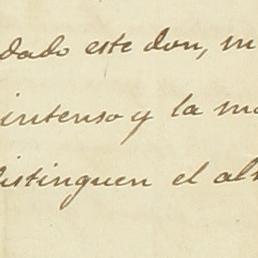 dado este don, m
intenso y la m
distinguen el al